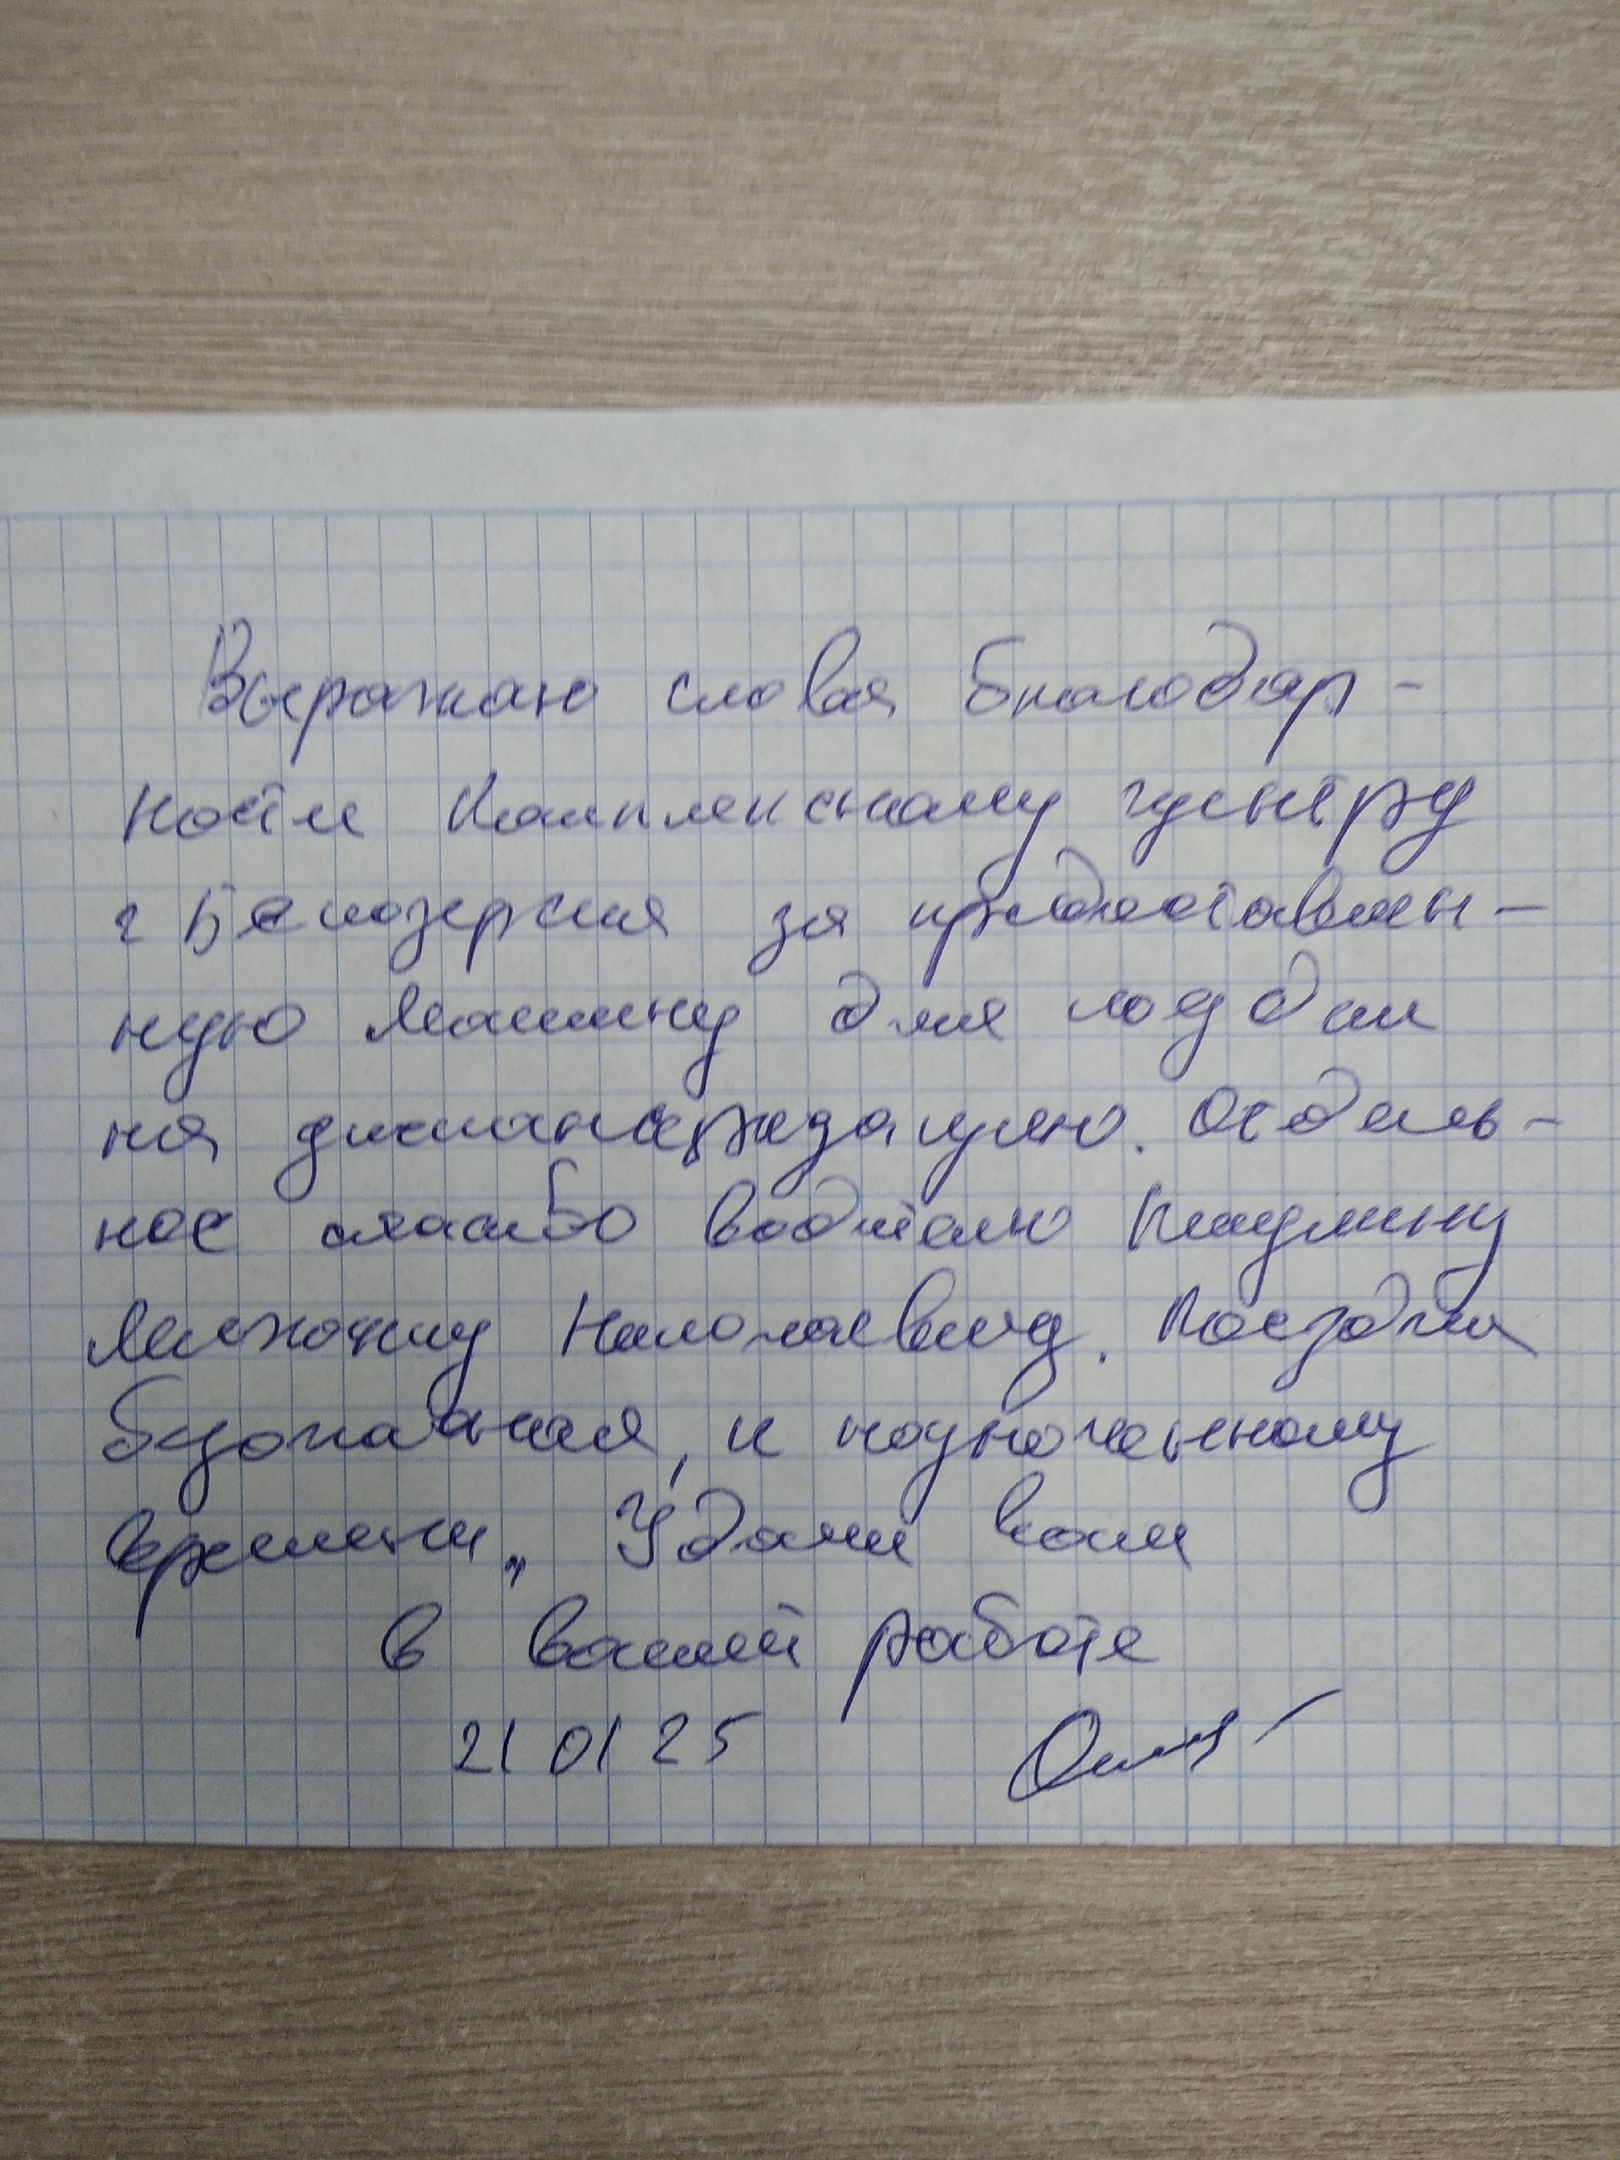 Выражаю слова благодар-
ности Комплексному центру
г Белозерска за предоставлен-
ную машину для поездки
на диспансеризацию. Отдель-
ное спасибо водителю
Николаевичу. Поездка
безопасная, и к назначенному
времени. Удачи вам
в вашей работе
21 01 25